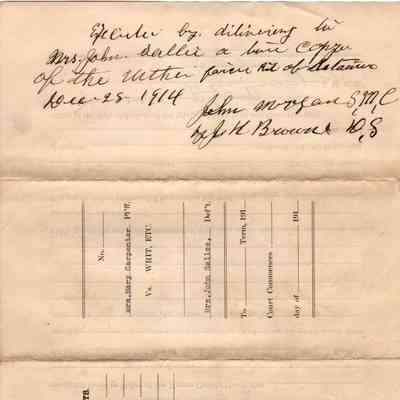 Execute by. dilivering to
Mrs. John Sallie a true Coppy
of the Within forim Rit of Detainer
Dec - 28 - 1914
John Morgan S,M,C
by J. H Brown D,S
No.
Mrs. Mary Carpenter Pl'ff.
Vs. WRIT, ETC.
Mrs. John Sallee, Def't.
To Term, 191
Court Commences
day of 191